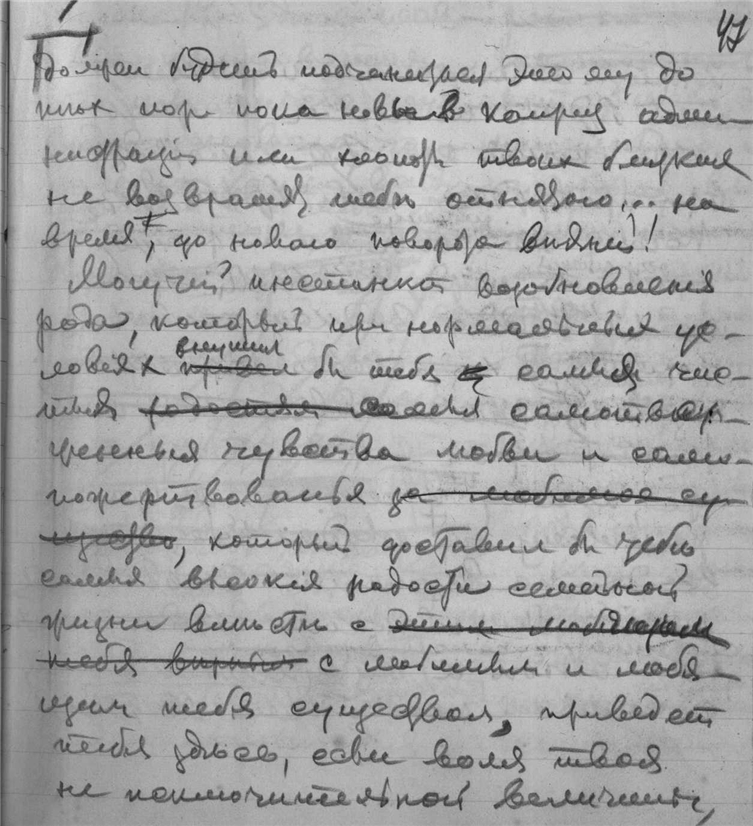 47
долженъ будешь подчиниться этому до
тѣхъ поръ пока новый капризъ адми-
нистраціи или хлопоты твоихъ близкихъ
не возвратятъ тебѣ отнятаго... на
время, до новаго поворота вѣяній!
Могучій инстинктъ возобновленія
рода, который при нормальныхъ ус-
ловіяхъ внушилъ бы тебѣ самыя чис-
тыя самоотвер-
женныя чувства любви и само-
пожертвованья за любимое су-
щество, который доставилъ бы тебѣ
самыя высокія радости семейной
жизни вмѣстѣ с
тебя с любимымъ и любя-
щимъ тебя существомъ, приведетъ
тебя здѣсь, если воля твоя
не исключительной величины,